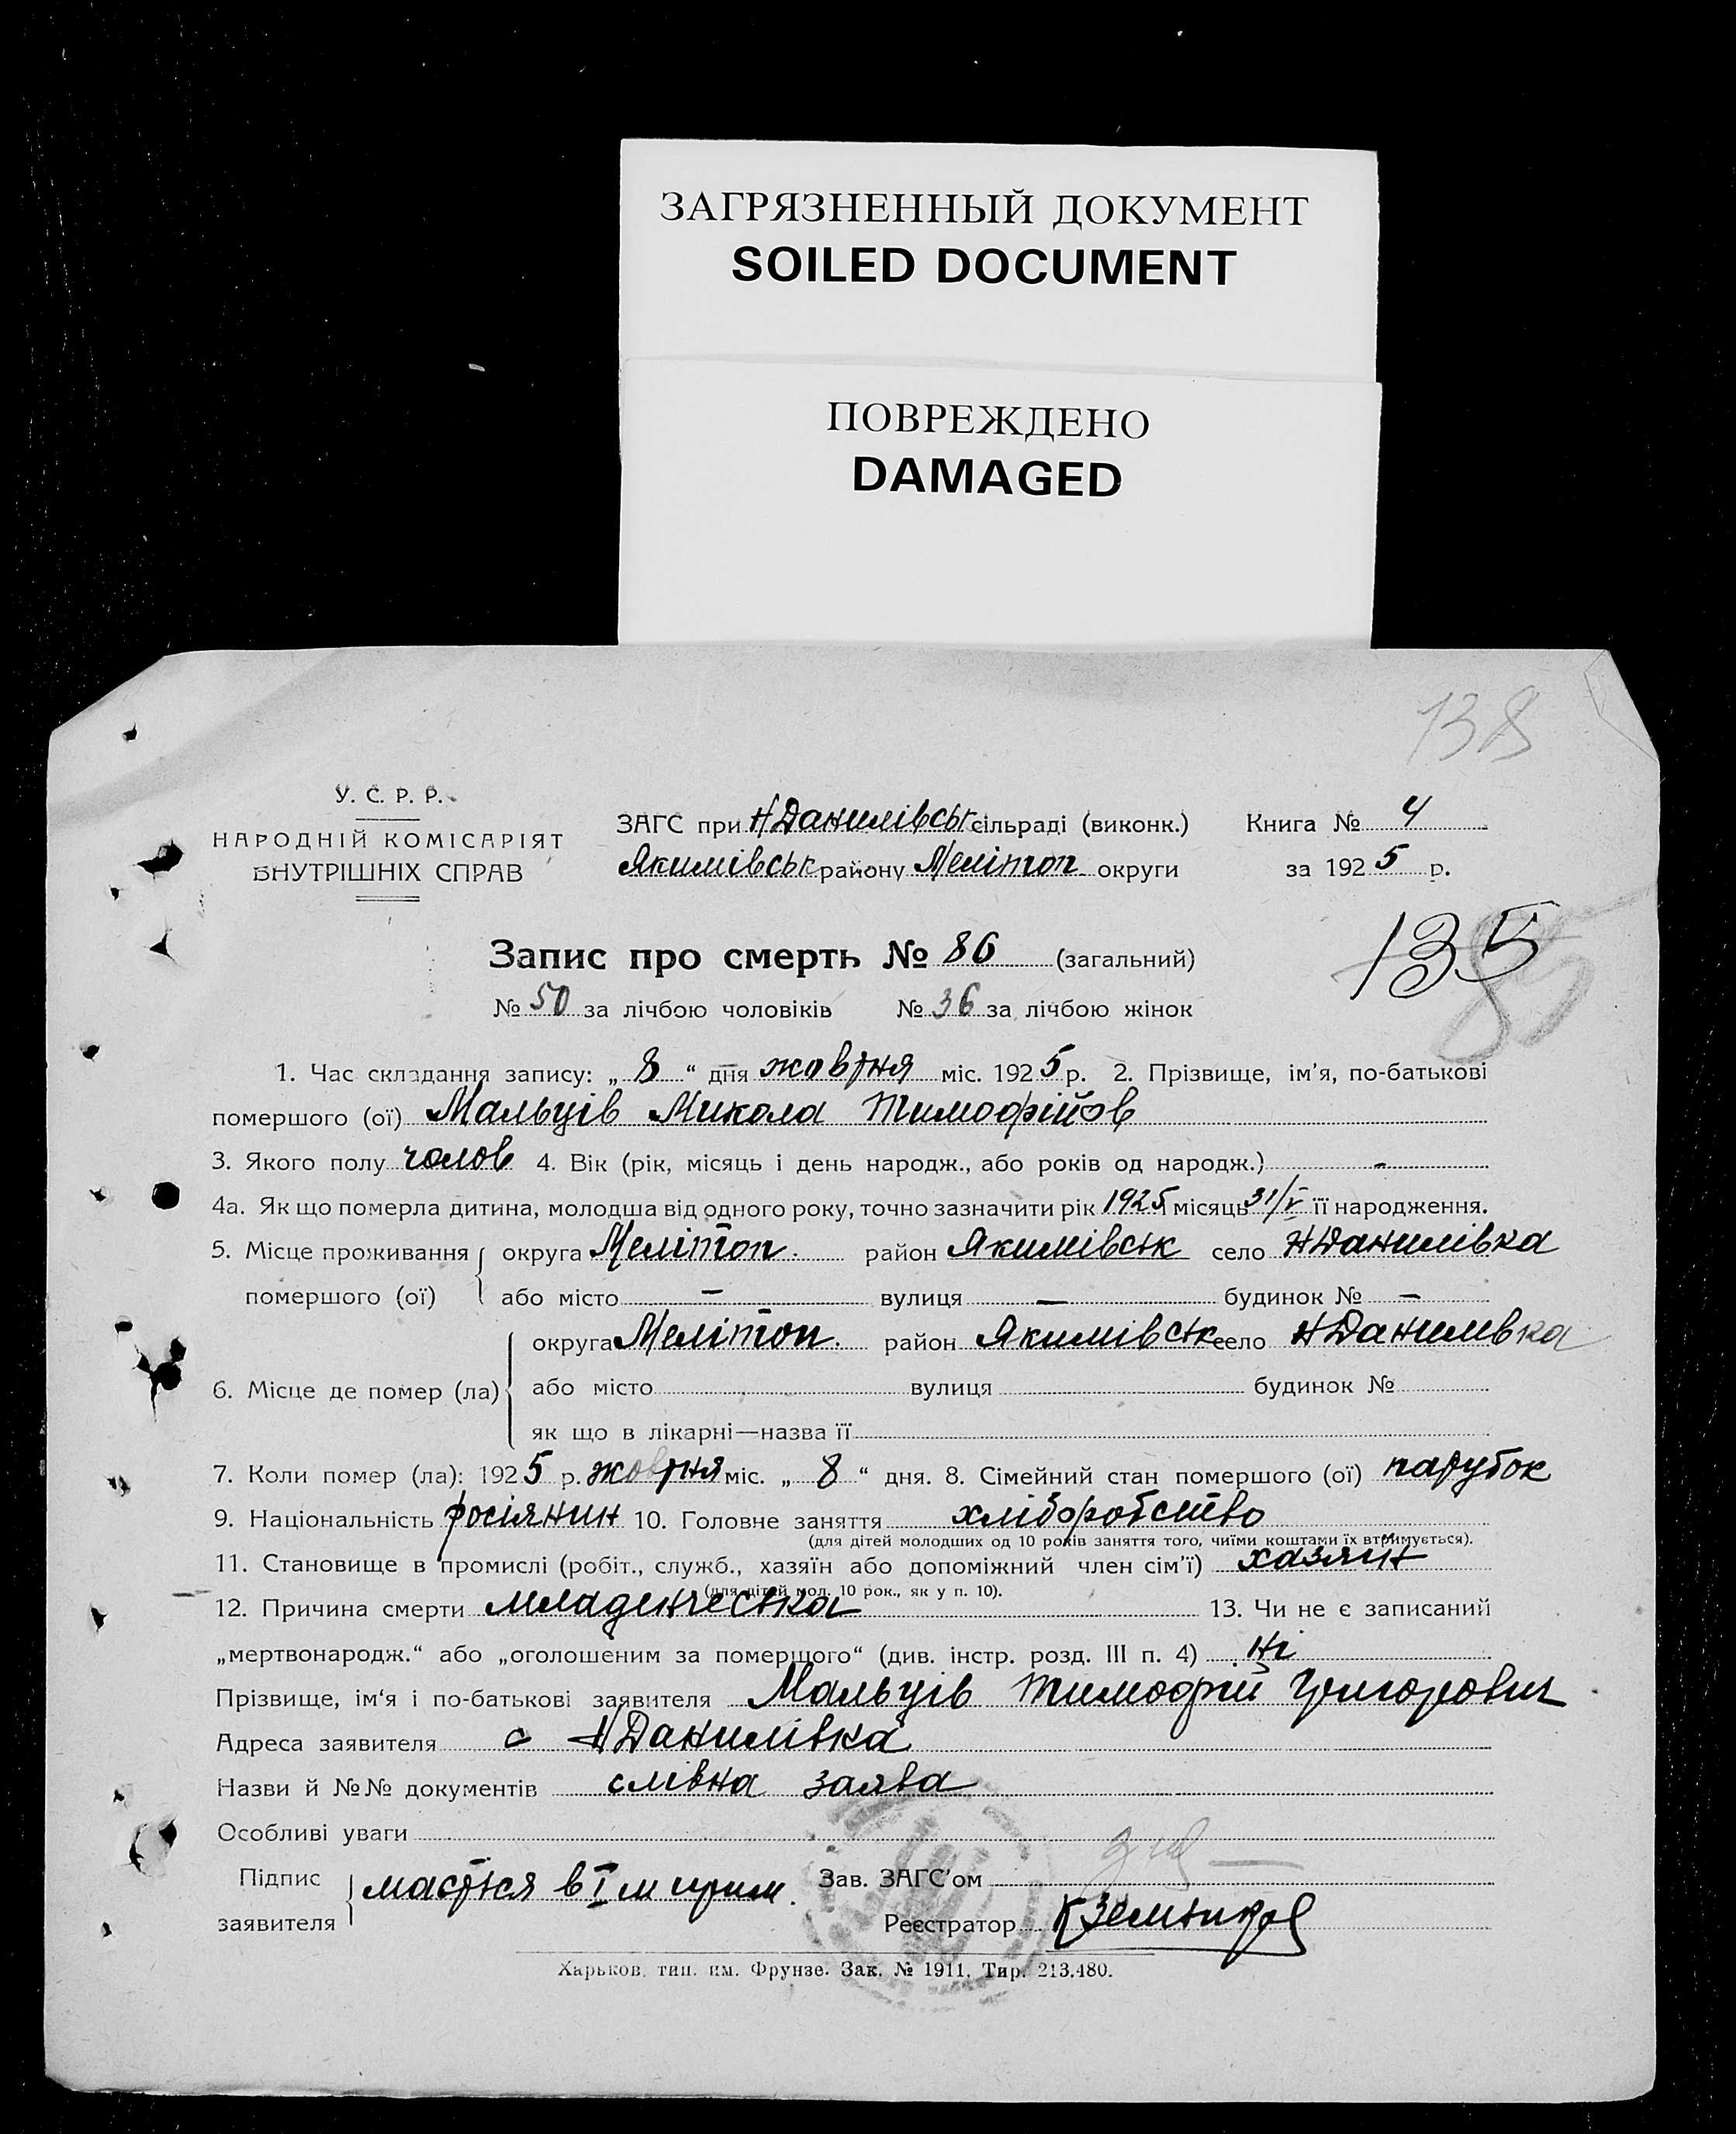 ЗАГРЯЗНЕННЫЙ ДОКУМЕНТ
SOILED DOCUMENT
ПОВРЕЖДЕНО
DAMAGED
138
У. С. Р. Р.
НАРОДНІЙ КОМІСАРІЯТ
ВНУТРІШНІХ СПРАВ
ЗАГС при Н Данилівськ сільраді (виконк.) Книга № 4
Якимівськ району Мелітоп. округи за 1925 р.
135
85
Запис про смерть № 86 (загальний)
№ 50 за лічбою чоловіків № 36 за лічбою жінок
1. Час складання запису: „ 8 “ дня жовтня міс. 1925 р. 2. Прізвище, ім’я, по-батькові
помершого (ої) Мальців Микола Тимофійов
3. Якого полу чолов 4. Вік (рік, місяць і день народж., або років од народж.) -
4а. Як що померла дитина, молодша від одного року, точно зазначити рік 1925 місяць 31/V її народження.
5. Місце проживання округа Мелітоп. район Якимівськ село Н Данилівка
помершого (ої) або місто — вулиця — будинок № —
округа Мелітоп. район Якимівськ село Н Данилівка
6. Місце де помер (ла) або місто вулиця будинок №
як що в лікарні—назва її
7. Коли помер (ла): 1925 р. жовтня міс. „ 8 “ дня. 8. Сімейний стан помершого (ої) парубок
9. Національність росіянин 10. Головне заняття хліборобство
(для дітей молодших од 10 років заняття того, чиїми коштами їх втримується).
11. Становище в промислі (робіт., служб., хазяїн або допоміжний член сім’ї) хазяин
(для дітей мол. 10 рок., як у п. 10).
12. Причина смерти младенческа 13. Чи не є записаний
„мертвонародж.“ або „оголошеним за померщого“ (див. інстр. розд. III п. 4) Ні
Прізвище, ім‘я і по-батькові заявителя Мальців Тимофій Григорович
Адреса заявителя с Н Данилівка
Назви й №№ документів слівна заява
Особливі уваги
Підпис
заявителя мається в I м прим. Зав. ЗАГС’ом
Реєстратор
Харьков, тип. им. Фрунзе. Зак. № 1911. Тир. 213.480.